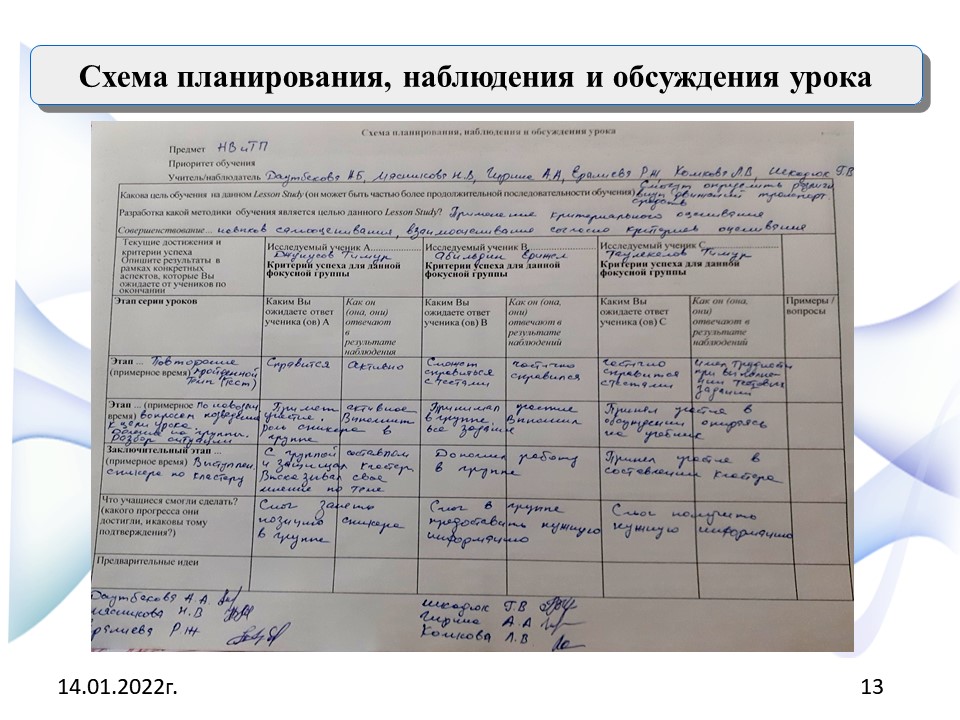 Схема планирования, наблюдения и обсуждения урока
Схема планирования, наблюдения и обсуждения урока
Предмет НВиТП
Приоритет обучения
Учитель/наблюдатель Даутбекова Мясникова Н.В, Гирина А.А, Ералиева Р.Ж, Комкова Л.В, Шкадюк Г.В
Какова цель обучения на данном Lesson Study (он может быть частью более продолжительной последовательности обучения) Смогут определить
виды движений транспорт.
средств
Разработка какой методики обучения является целью данного Lesson Study? Применение критериального оценивания
Совершенствование... навыков самооценивания, взаимооценивание согласно критериев оценивания
Текущие достижения и
критерии успеха
Опишите результаты в
рамках конкретных
аспектов, которые Вы
ожидаете от учеников по
окончании
Исследуемый ученик А
Тимур
Критерий успеха для данной
фокусной группы
Исследуемый ученик В
Критерии успеха для данной
фокусной группы
Исследуемый ученик С
Тимур
Критерии успеха для данной
фокусной группы
Этап серии уроков
Каким Вы
ожидаете ответ
ученика (ов) А
Как он
(она, они)
отвечают
в
результате
наблюдения
Каким Вы
ожидаете ответ
ученика (ов) В
Как он (она,
они)
отвечают в
результате
наблюдений
Каким Вы
ожидаете ответ
ученика (ов) С
Как он (она,
они)
отвечают в
результате
наблюдений
Примеры /
вопросы
Этап ... Повторение
(примерное время) пройденной
(Тест)
Справится
активно
Сможет
справиться
с тестами
частично
справился
частично
справиться
с тестами
имел трудности
при выполне-
нии тестовых
заданий
Этап ... (примерное
время) вопросам
к цели урока.
на группы.
Разбор ситуации
Примет
участие.
Роль спикера в
группе
активное
Выполнит
Принимал
в группе,
все задания
участие
Выполнил
Принял участие в
обсуждении опираясь
на учебник
Заключительный этап ...
(примерное время) Выступлен.
спикера по кластеру
С группой составлял
и защищал кластер
Высказывал свое
мнение по теме
Дополнил работу
в группе
Принял участие в
составлении кластера
Что учащиеся смогли сделать?
(какого прогресса они
достигли, икаковы тому
подтверждения?)
Смог занять
позицию спикера
в группе
Смог в группе
предоставить нужную
информацию
Смог получить
нужную информацию
Предварительные идеи
Даутбекова А А
Мясникова Н.В
Ералиева Р Ж
Шкадюк Г.В
Гирина А.А
Комкова Л.В
14.01.2022г.
13